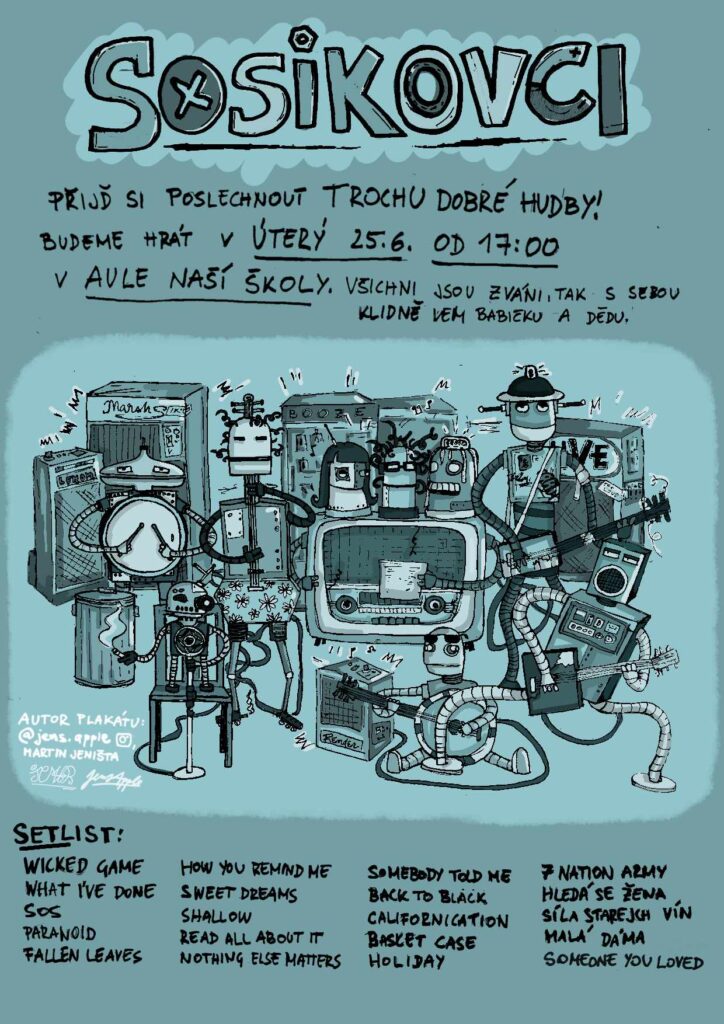 SOSIKOVCI
PŘIJĎ SI POSLECHNOUT TROCHU DOBRÉ HUDBY!
BUDEME HRÁT V ÚTERÝ 25.6. OD 17:00
V AULE NAŠÍ ŠKOLY. VŠICHNI JSOU ZVÁNI, TAK S SEBOU
KLIDNĚ VEM BABIČKU A DĚDU.
Marsh
BOOZE
VE
Bender
AUTOR PLAKÁTU:
@jens.apple
MARTIN JENIŠTA
Jens Apple
SETLIST:
WICKED GAME
WHAT I'VE DONE
SOS
PARANOID
FALLEN LEAVES
HOW YOU REMIND ME
SWEET DREAMS
SHALLOW
READ ALL ABOUT IT
NOTHING ELSE MATTERS
SOMEBODY TOLD ME
BACK TO BLACK
CALIFORNICATION
BASKET CASE
HOLIDAY
7 NATION ARMY
HLEDÁ SE ŽENA
SÍLA STAREJCH VÍN
MALÁ DÁMA
SOMEONE YOU LOVED